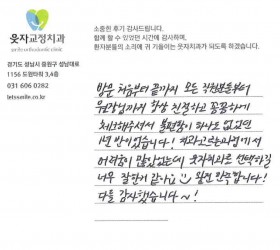 소중한 후기 감사드립니다.
함께 할 수 있었던 시간에 감사하며,
환자분들의 소리에 귀 기울이는 웃자치과가 되도록 하겠습니다.
웃자교정치과
경기도 성남시 중원구 성남대로
1156 도원타워 3,4층
031 606 0282
letssmile.co.kr
방문 처음부터 끝까지 모든 직원분들부터
원장님까지 항상 친절하고 꼼꼼하게
체크해주셔서 불편함이 하나도 없었던
1년 반이었습니다! 치과 고르는 과정에서
어려움이 많았었는데 웃자치과를 선택하길
너무 잘한거 같아요 :) 완전 만족합니다!
다들 감사했습니다~!